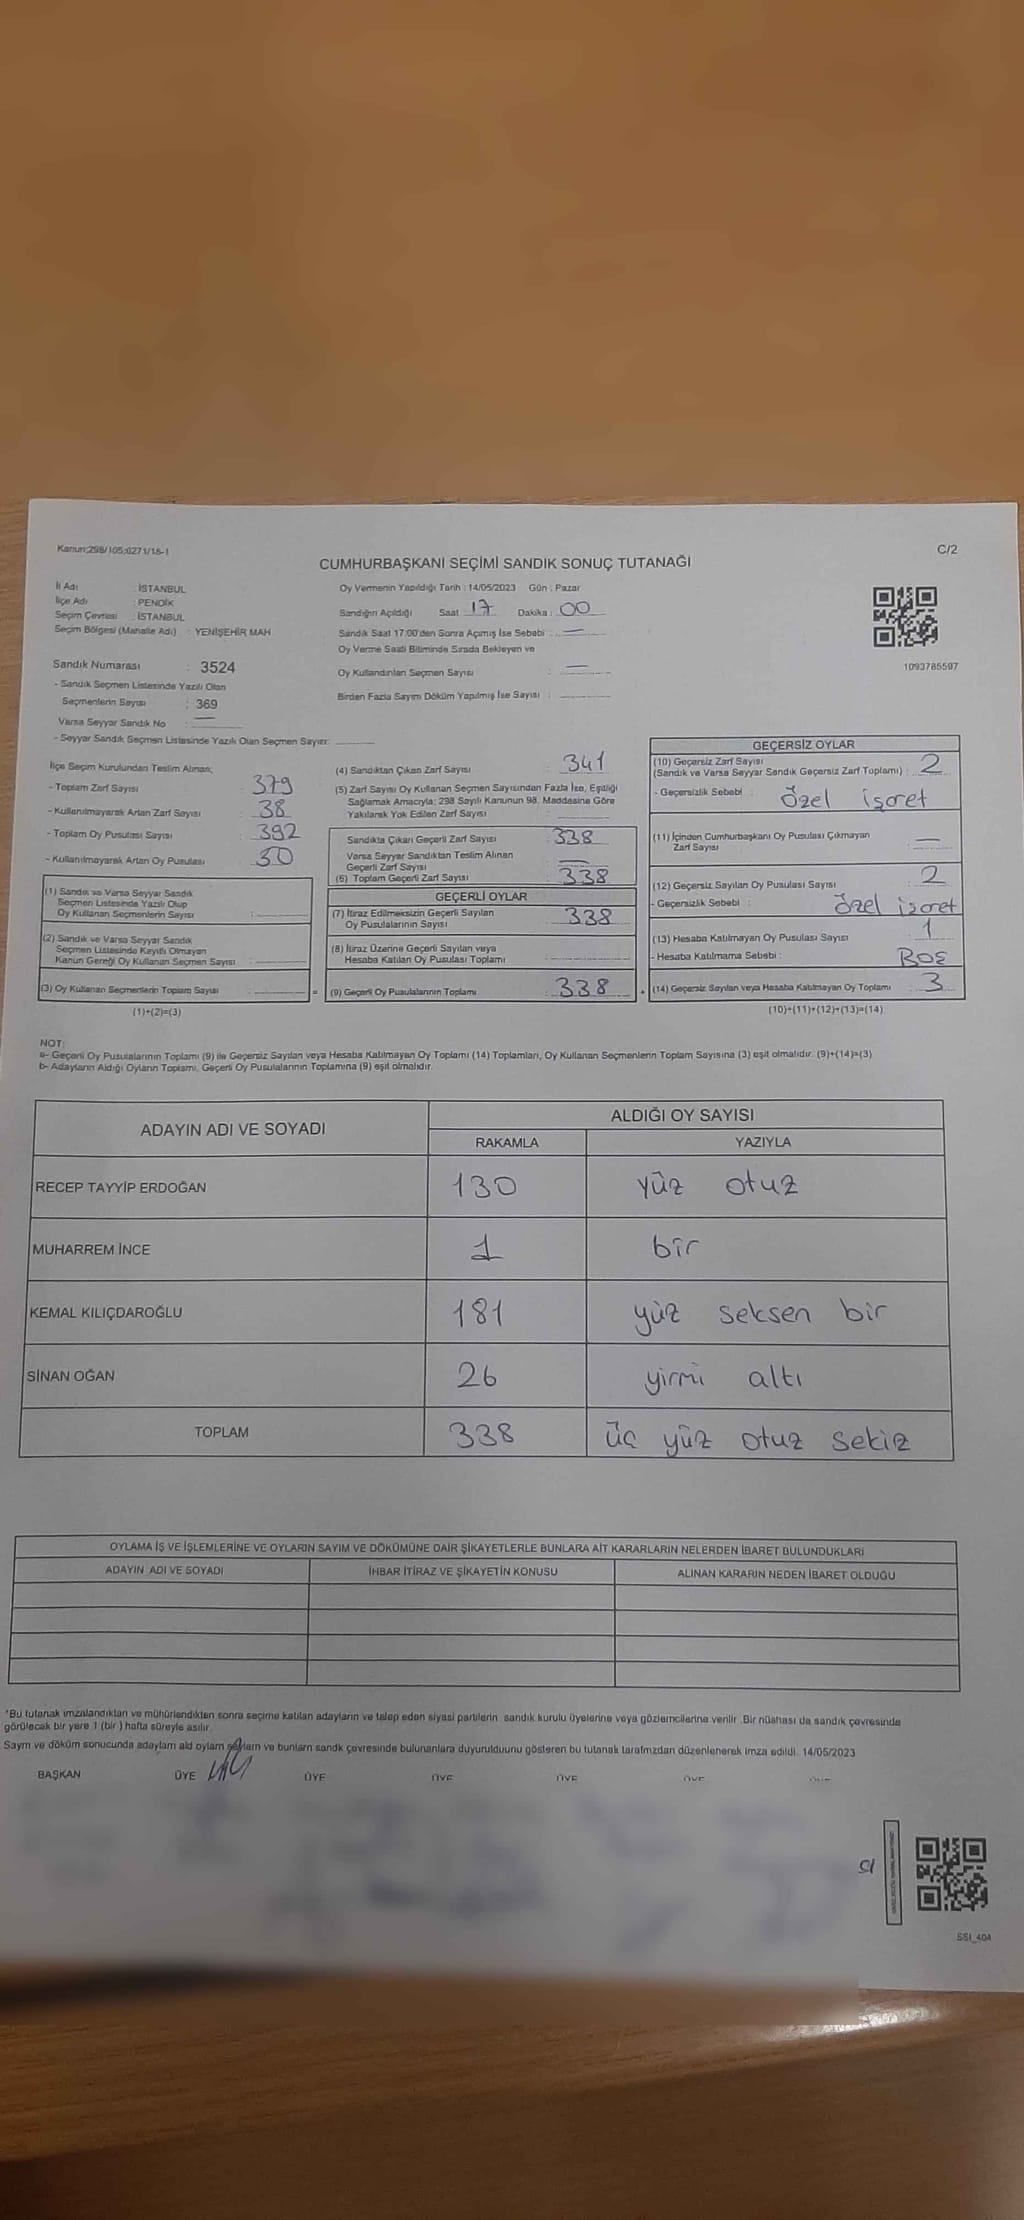 Kanun:298/105;6271/18-1
C/2
CUMHURBAŞKANI SEÇİMİ SANDIK SONUÇ TUTANAĞI
İl Adı : İSTANBUL
İlçe Adı : PENDİK
Seçim Çevresi : İSTANBUL
Seçim Bölgesi (Mahalle Adı) : YENİŞEHİR MAH
Sandık Numarası : 3524
- Sandık Seçmen Listesinde Yazılı Olan
Seçmenlerin Sayısı : 369
Varsa Seyyar Sandık No : —
- Seyyar Sandık Seçmen Listesinde Yazılı Olan Seçmen Sayısı:
Oy Vermenin Yapıldığı Tarih : 14/05/2023 Gün : Pazar
Sandığın Açıldığı Saat 17 Dakika : 00
Sandık Saat 17:00'den Sonra Açımış İse Sebebi : —
Oy Verme Saati Bitiminde Sırada Bekleyen ve
Oy Kullandırılan Seçmen Sayısı : —
Birden Fazla Sayım Döküm Yapılmış İse Sayısı :
1093785597
İlçe Seçim Kurulundan Teslim Alınan;
- Toplam Zarf Sayısı : 379
- Kullanılmayarak Artan Zarf Sayısı : 38
- Toplam Oy Pusulası Sayısı : 392
- Kullanılmayarak Artan Oy Pusulası : 50
(1) Sandık ve Varsa Seyyar Sandık
Seçmen Listesinde Yazılı Olup
Oy Kullanan Seçmenlerin Sayısı :
(2) Sandık ve Varsa Seyyar Sandık
Seçmen Listesinde Kayıtlı Olmayan
Kanun Gereği Oy Kullanan Seçmen Sayısı :
(3) Oy Kullanan Seçmenlerin Toplam Sayısı :
(1)+(2)=(3)
(4) Sandıktan Çıkan Zarf Sayısı : 341
(5) Zarf Sayısı Oy Kullanan Seçmen Sayısından Fazla İse, Eşitliği
Sağlamak Amacıyla; 298 Sayılı Kanunun 98. Maddesine Göre
Yakılarak Yok Edilen Zarf Sayısı :
Sandıkta Çıkan Geçerli Zarf Sayısı : 338
Varsa Seyyar Sandıktan Teslim Alınan
Geçerli Zarf Sayısı : —
(6) Toplam Geçerli Zarf Sayısı : 338
GEÇERLİ OYLAR
(7) İtiraz Edilmeksizin Geçerli Sayılan
Oy Pusulalarının Sayısı : 338
(8) İtiraz Üzerine Geçerli Sayılan veya
Hesaba Katılan Oy Pusulası Toplamı :
= (9) Geçerli Oy Pusulalarının Toplamı : 338
GEÇERSİZ OYLAR
(10) Geçersiz Zarf Sayısı
(Sandık ve Varsa Seyyar Sandık Geçersiz Zarf Toplamı) : 2
- Geçersizlik Sebebi : Özel işaret
(11) İçinden Cumhurbaşkanı Oy Pusulası Çıkmayan
Zarf Sayısı : —
(12) Geçersiz Sayılan Oy Pusulası Sayısı : 2
- Geçersizlik Sebebi : Özel işaret
(13) Hesaba Katılmayan Oy Pusulası Sayısı : 1
- Hesaba Katılmama Sebebi : BOŞ
+ (14) Geçersiz Sayılan veya Hesaba Katılmayan Oy Toplamı : 3
(10)+(11)+(12)+(13)=(14)
NOT:
a- Geçerli Oy Pusulalarının Toplamı (9) ile Geçersiz Sayılan veya Hesaba Katılmayan Oy Toplamı (14) Toplamları, Oy Kullanan Seçmenlerin Toplam Sayısına (3) eşit olmalıdır. (9)+(14)=(3)
b- Adayların Aldığı Oyların Toplamı, Geçerli Oy Pusulalarının Toplamına (9) eşit olmalıdır.
ADAYIN ADI VE SOYADI ALDIĞI OY SAYISI
RAKAMLA YAZIYLA
RECEP TAYYİP ERDOĞAN 130 yüz otuz
MUHARREM İNCE 1 bir
KEMAL KILIÇDAROĞLU 181 yüz seksen bir
SİNAN OĞAN 26 yirmi altı
TOPLAM 338 üç yüz otuz sekiz
OYLAMA İŞ VE İŞLEMLERİNE VE OYLARIN SAYIM VE DÖKÜMÜNE DAİR ŞİKAYETLERLE BUNLARA AİT KARARLARIN NELERDEN İBARET BULUNDUKLARI
ADAYIN ADI VE SOYADI İHBAR İTİRAZ VE ŞİKAYETİN KONUSU ALINAN KARARIN NEDEN İBARET OLDUĞU
*Bu tutanak imzalandıktan ve mühürlendikten sonra seçime katılan adayların ve talep eden siyasi partilerin sandık kurulu üyelerine veya gözlemcilerina verilir .Bir nüshası da sandık çevresinde
görülecek bir yere 1 (bir ) hafta süreyle asılır.
Sayım ve döküm sonucunda adaylam ald oylam saylam ve bunlam sandk çevresinde bulunanlara duyurulduunu gösteren bu tutanak tarafmzdan düzenlenerek imza edildi. 14/05/2023
BAŞKAN ÜYE ÜYE ÜYE ÜYE ÜYE ÜYE
SSI_40A